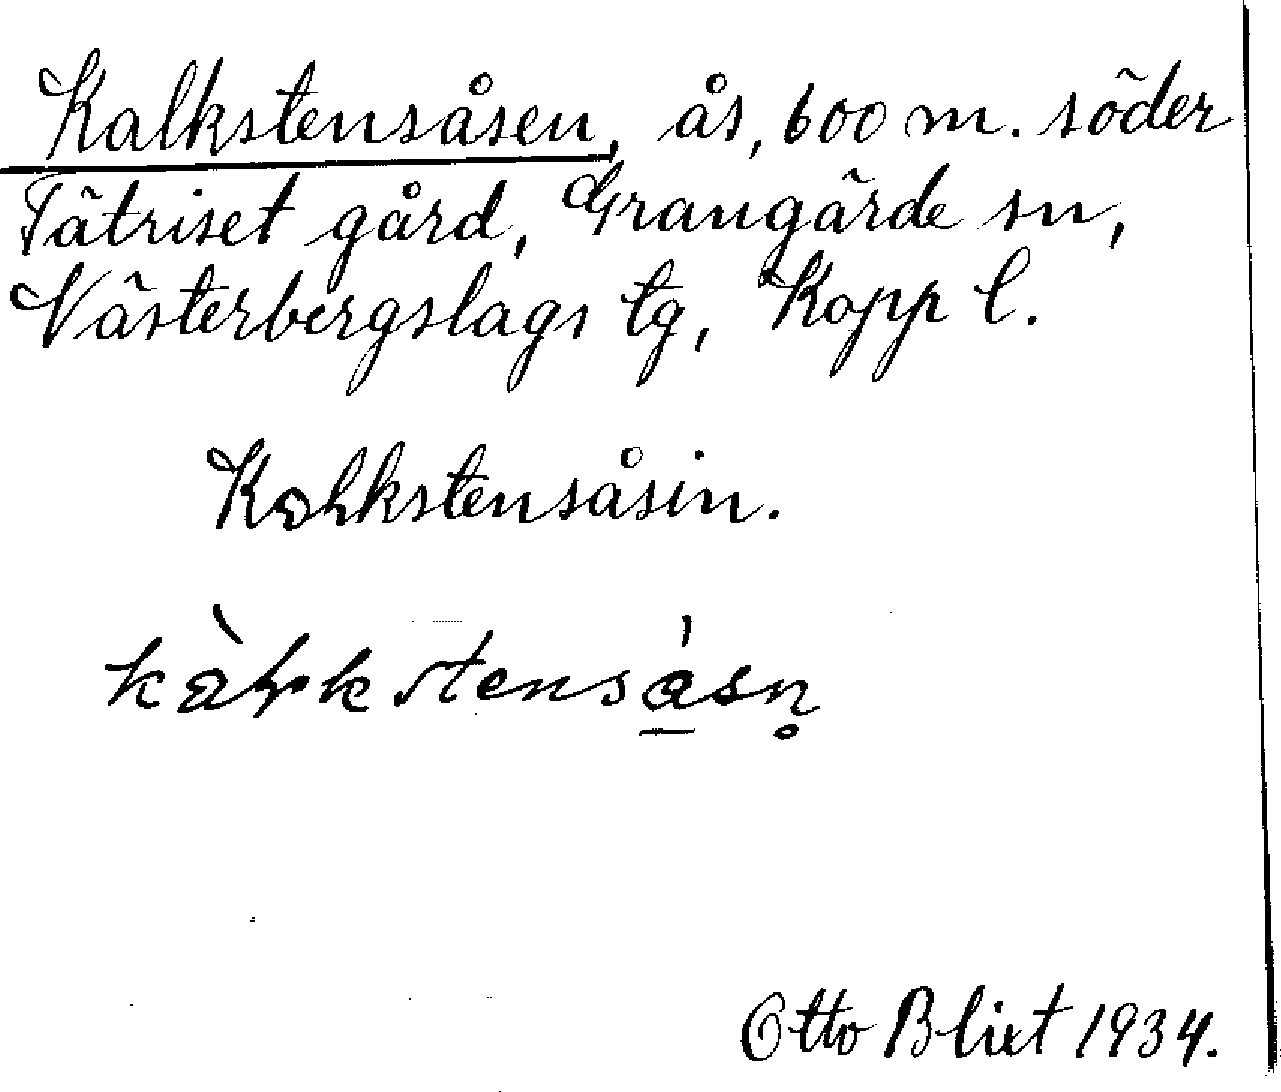 Kalkstensåsen, ås, 600 m. söder
Tätriset gård, Grangärde sn,
Västerbergslags tg, Kopp l.
Kahkstensåsin.
Otto Blixt 1934.